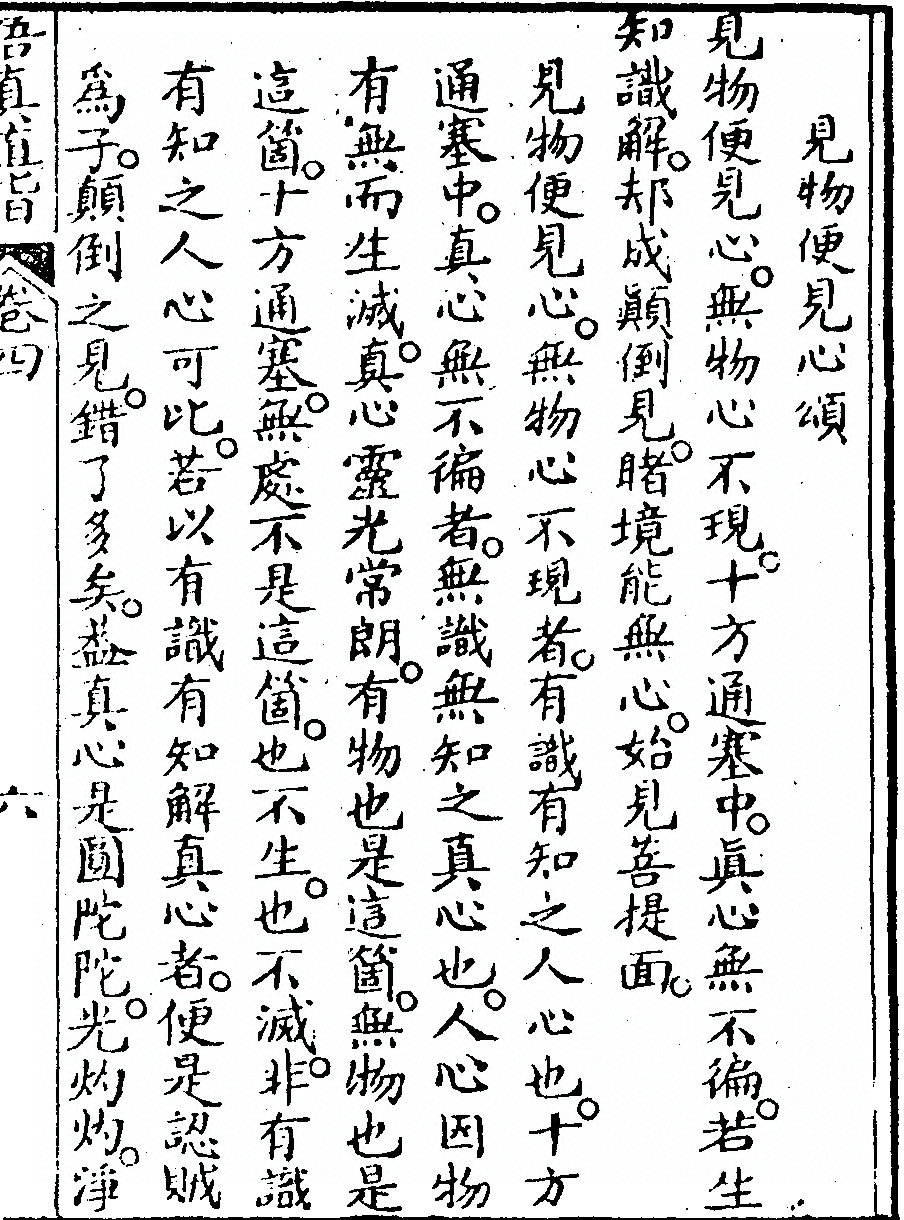 見物便見心頌
見物便見心。無物心不現。十方通塞中。眞心無不徧。若生
知識解。却成顚倒見。睹境能無心。始見菩提面。
見物便見心。無物心不現者。有識有知之人心也。十方
通塞中。真心無不徧者。無識無知之真心也。人心因物
有無而生滅。真心靈光常朗。有物也是這箇。無物也是
這箇。十方通塞。無處不是這箇。也不生。也不滅。非有識
有知之人心可比。若以有識有知解真心者。便是認賊
爲子。顛倒之見。錯了多矣。蓋真心是圓陀陀。光灼灼。淨
悟真直指 卷四 六